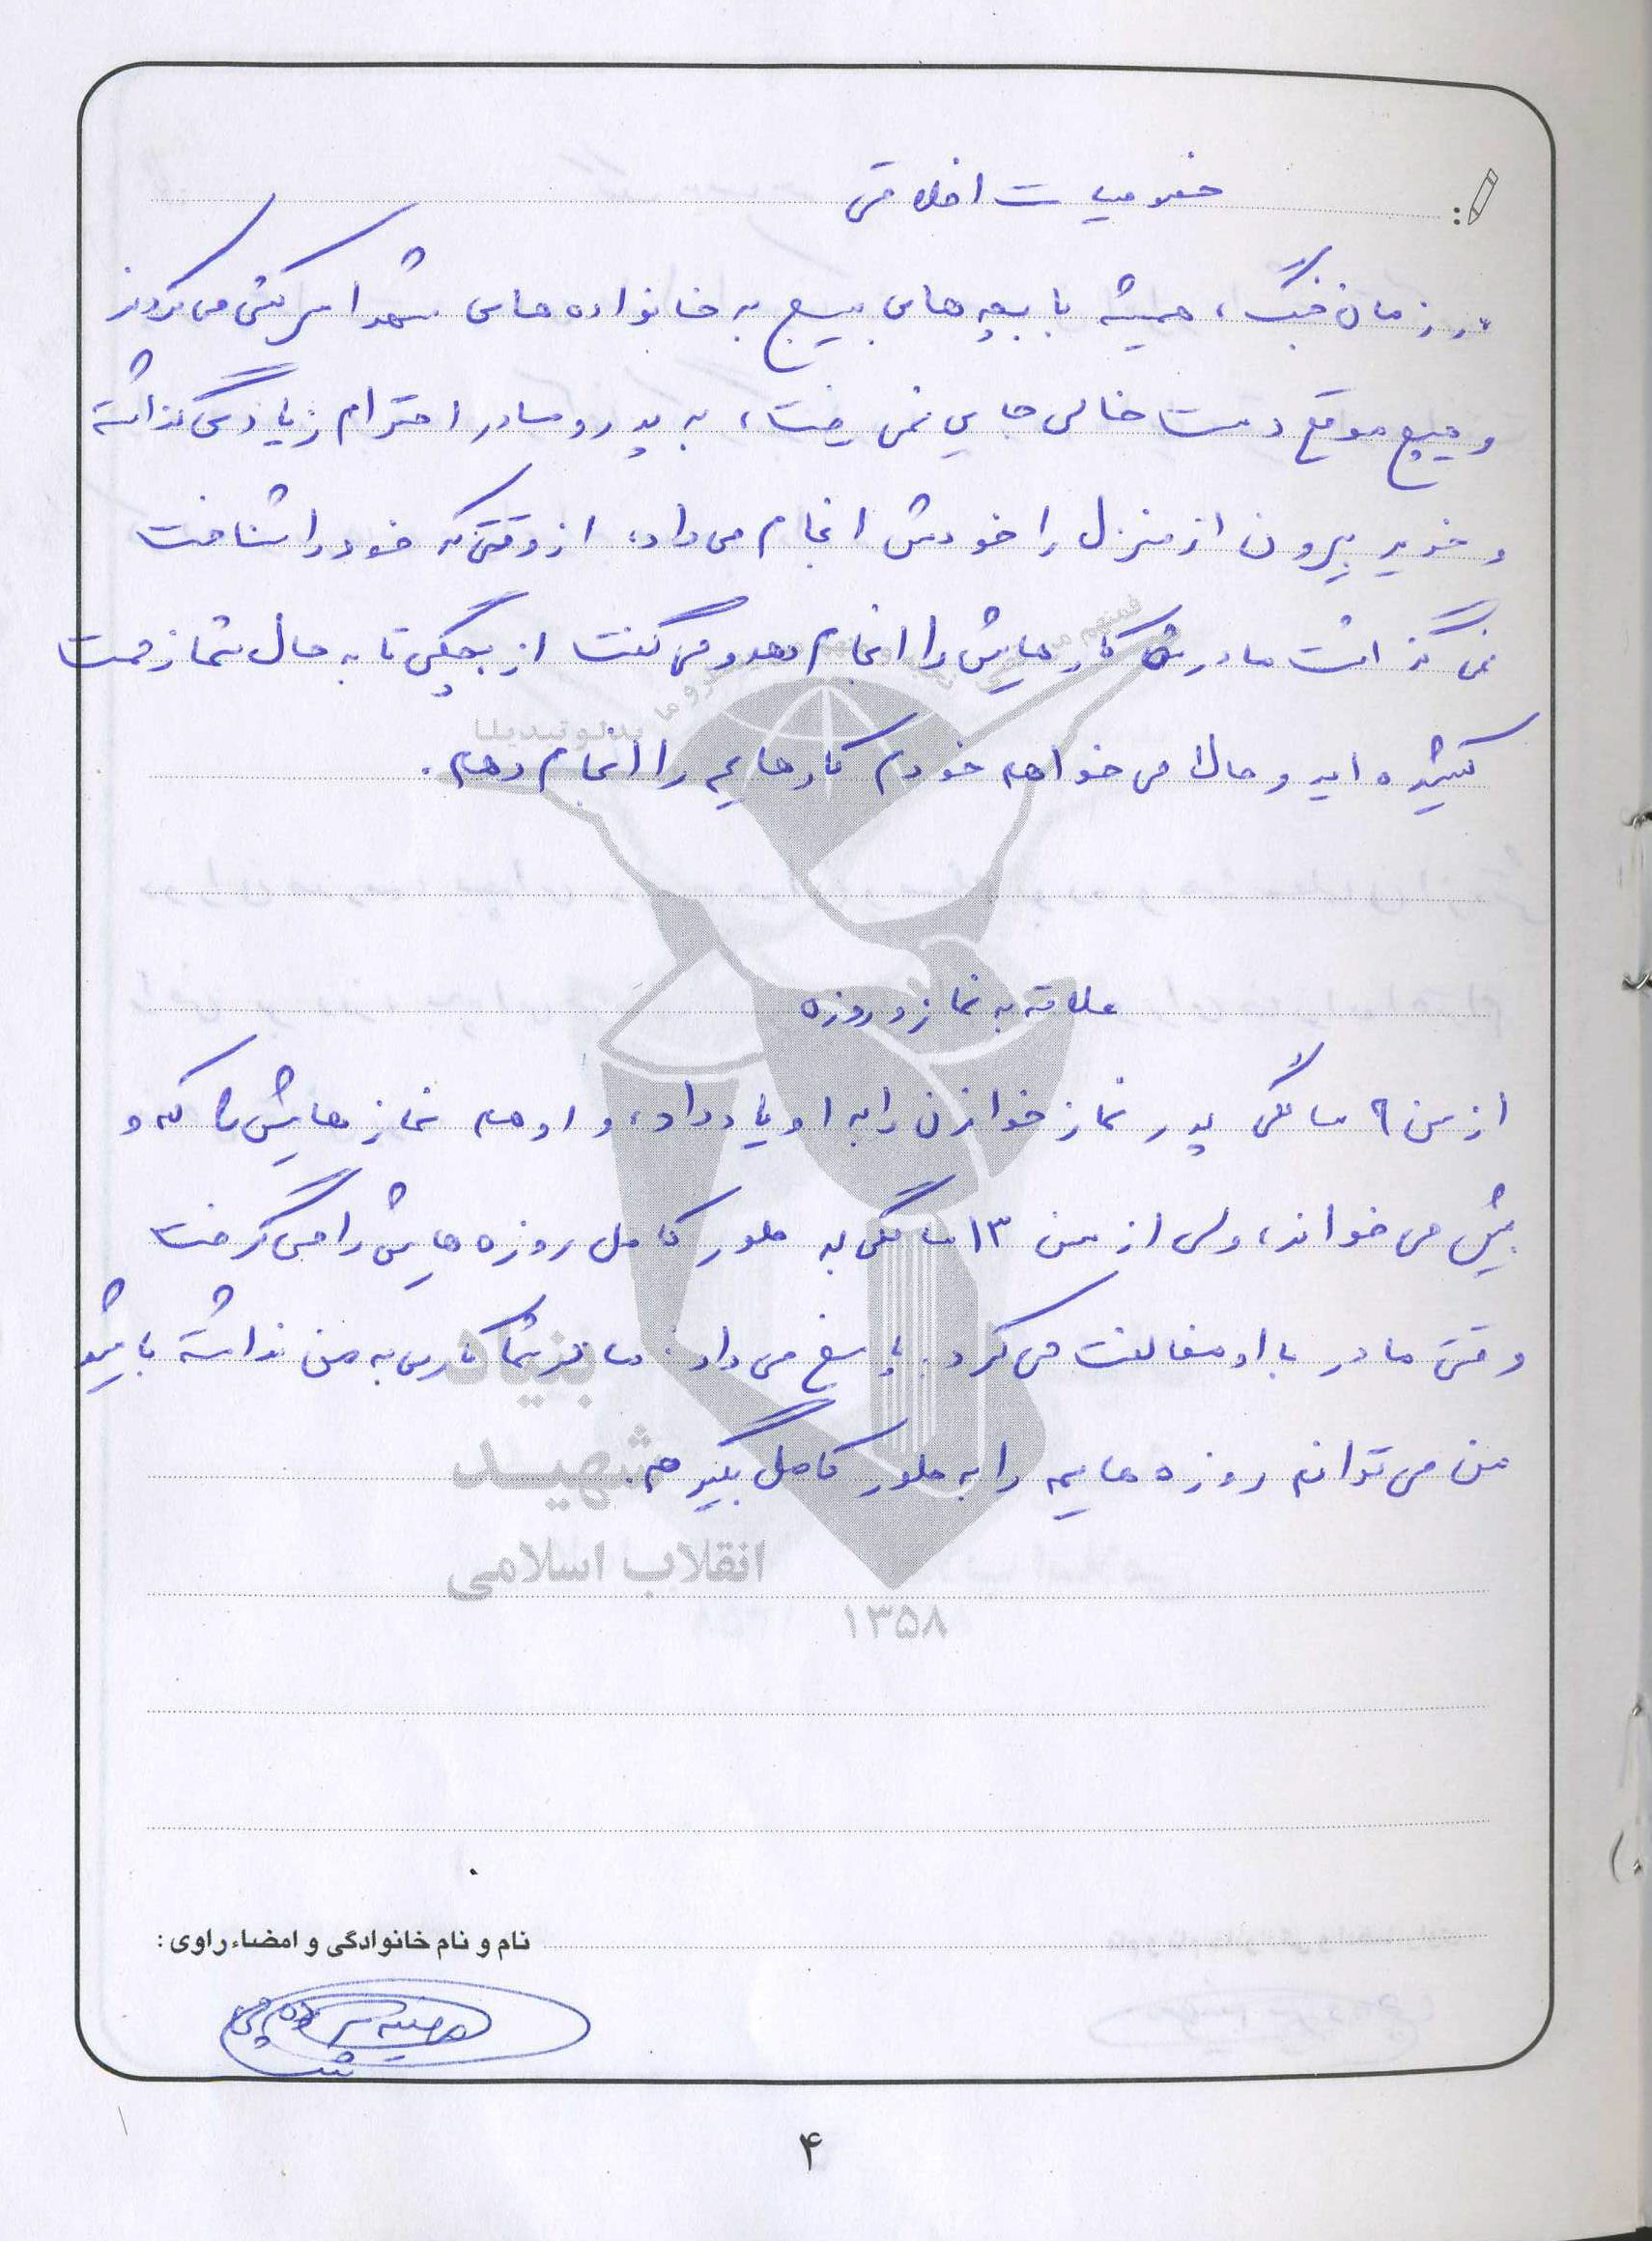 خصوصیات اخلاقی
در زمان جنگ، همیشه با بچه های بسیج به خانواده های شهدا سرکشی می کردند
و هیچ موقع دست خالی جایی نمی رفت، به پدر و مادر احترام زیادی گذاشته
و خرید بیرون از منزل را خودش انجام می داد، از وقتی که خود را شناخت
نمی گذاشت مادرش کارهایش را انجام دهد و می گفت از بچگی تا به حال شما زحمت
کشیده اید و حالا می خواهم خودم کارهایم را انجام دهم.
علاقه به نماز و روزه
از سن ۹ سالگی پدر نماز خواندن را به او یاد داد، و او هم نمازهایش را کم و
بیش می خواند، ولی از سن ۱۳ سالگی به طور کامل روزه هایش را می گرفت
وقتی مادر با او مخالفت می کرد. پاسخ می داد: مادر شما کاری به من نداشته باشید
من می توانم روزه هایم را به طور کامل بگیرم.
بنیاد
شهید
انقلاب اسلامی
۱۳۵۸
نام و نام خانوادگی و امضاء راوی:
۴